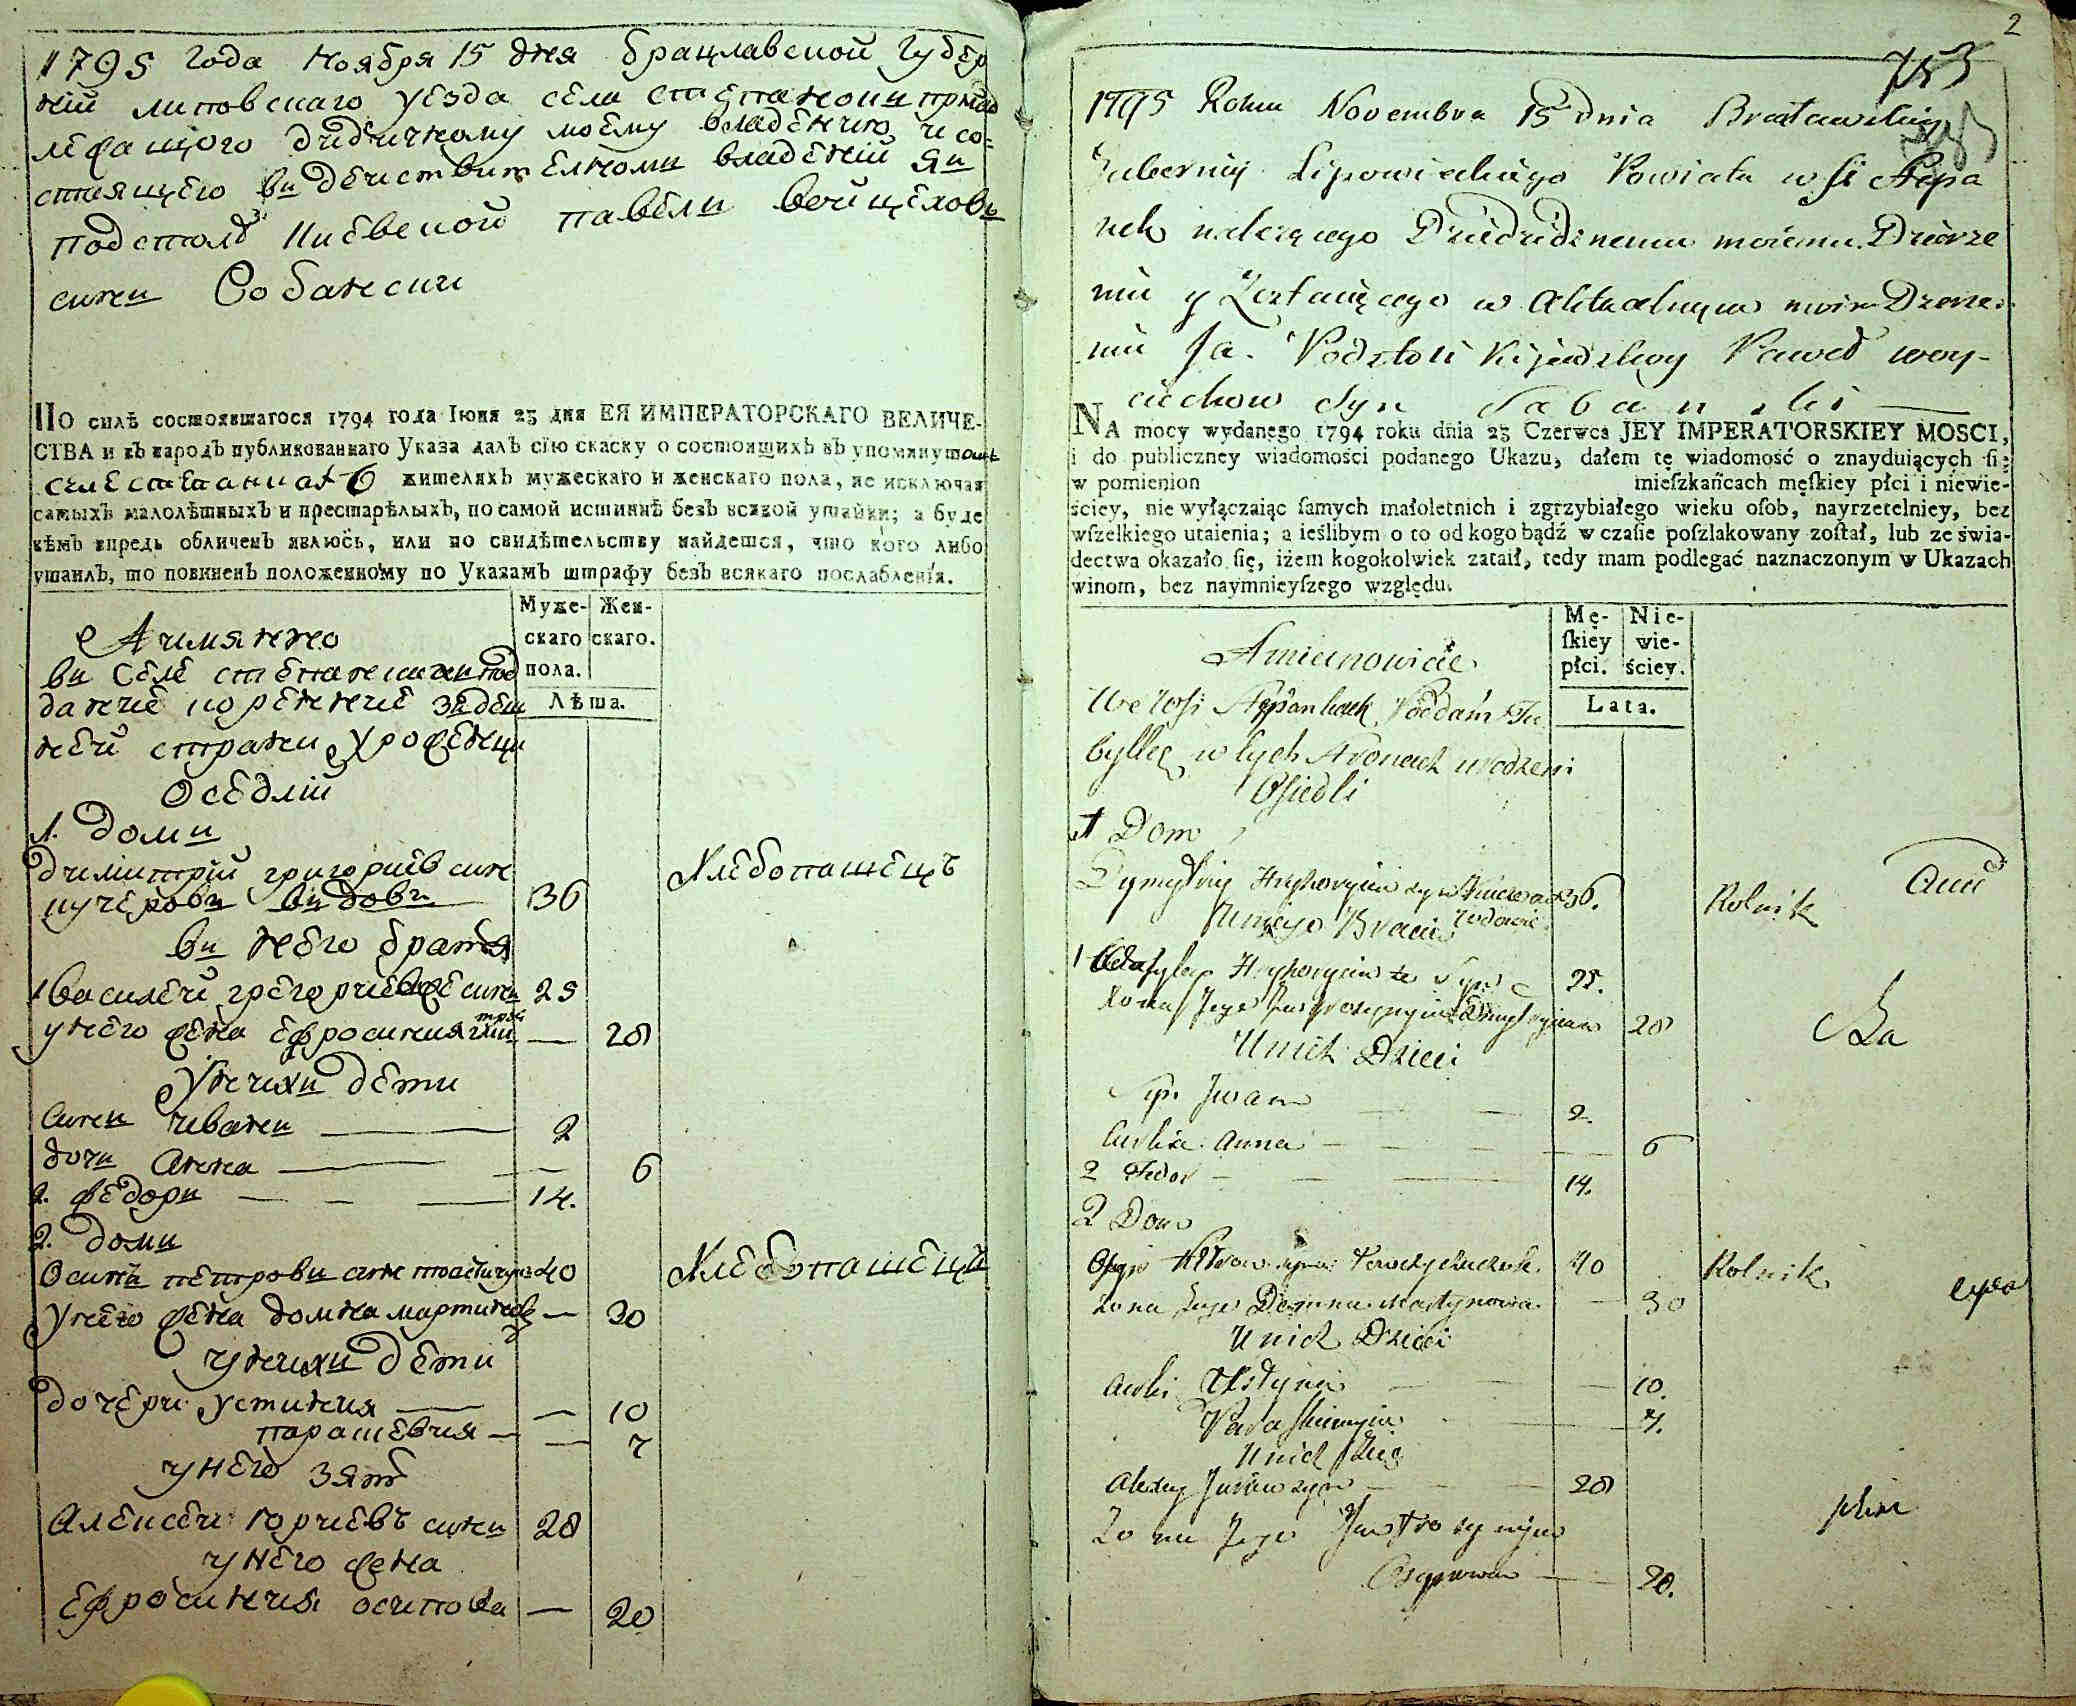 1795 года ноября 15 дня брацлавской губер
ній липовскаго уезда села степанокъ принад
лежащого дедичному моему владению, и со-
стоящего въ дѣиствителномъ владеній Я
подстолй киевской павелъ войцеховъ
синъ Собанский
ПО силѣ состоявшагося 1794 года Іюня 23 дня ЕЯ ИМПЕРАТОРСКАГО ВЕЛИЧЕ-
СТВА и въ народъ публикованнаго Указа далъ сїю скаску о состоящихъ въ упомянутомъ
селе степанках жителяхъ мужескаго и женскаго пола, не исключая
самыхъ малолѣтныхъ и престарѣлыхъ, по самой истиннѣ безъ всякой утайки; а буде
кѣмъ впредь обличенъ явлюсь, или по свидѣтельству найдется, что кого либо
утаилъ, то повиненъ положенному по Указамъ штрафу безъ всякаго послабленїя.
Муже-скаго пола. Жен-скаго.
Лѣта.
А имянно
въ Селе степанках под
дание коренние здеш
ней страни урожени
Оседлій
1. домъ
димитрій григориев син
кучеровъ въдовъ 36 Хлебопашецъ
въ него братя
1 василей григориев синъ 25
у него жена ефросиния 28
у нихъ дети
синъ иванъ 2
дочъ Анна 6
2. федоръ 14.
2. домъ
Осипъ петровъ син 40 Хлебопашецъ
у него жена домна мартинов 30
у нихъ дети
дочери устиния 10
парашевия 7
у него зят
Алексеи юриевъ синъ 28
у него жена
ефросиния осипова 20
2
753
1795 Roku Novembra 15 dnia Bracławskiey
Gubernij Lipowieckiego Powiatu wsi Stepa
nek należącego Dziedzicznemu moiemu Dzierze
niu y Zostaiącego w Aktualnym moim Dzerże-
niu Ja. Podstoli Kijowskiy Paweł woy-
ciechow Syn Sobanski
NA mocy wydanego 1794 roku dnia 23 Czerwca JEY IMPERATORSKIEY MOSCI,
i do publiczney wiadomości podanego Ukazu, dałem tę wiadomość o znayduiących ſię
w pomienion mieſzkańcach męſkiey płci i niewie-
ściey, nie wyłączaiąc ſamych małoletnich i zgrzybiałego wieku oſob, nayrzetelniey, bez
wſzelkiego utaienia; a ieślibym o to od kogo bądź w czaſie poſzlakowany zoſtał, lub ze świa-
dectwa okazało ſię, iżem kogokolwiek zataił, tedy mam podlegać naznaczonym w Ukazach
winom, bez naymnieyſzego względu.
Mę-ſkiey płci. Nie-wie-ściey.
Lata.
Amianowicie
We Wsi Stepankach Poddani Tu
bylce w tych stronach urodzeni
Osiedli
1 Dom
Dymytry Hryhoryiow syn 36. Rolnik
U niego Bracia
1 Wasyley Hryhoryiow Syn 25.
Zona Jego 28
U nich Dzieci
Syn Jwan 2
Curka Anna 6
2 Fedor 14.
2 Dom
Osyp Petrow syn 40 Rolnik
Zona Jego Domna Martynowa 30
U nich Dzieci
Curki Ustynia 10.
Paraskiewyia 7.
U nich Zięć
Alexey Juriiow syn 28
Zona Jego Jewfrosynyia
Osypowa 20.